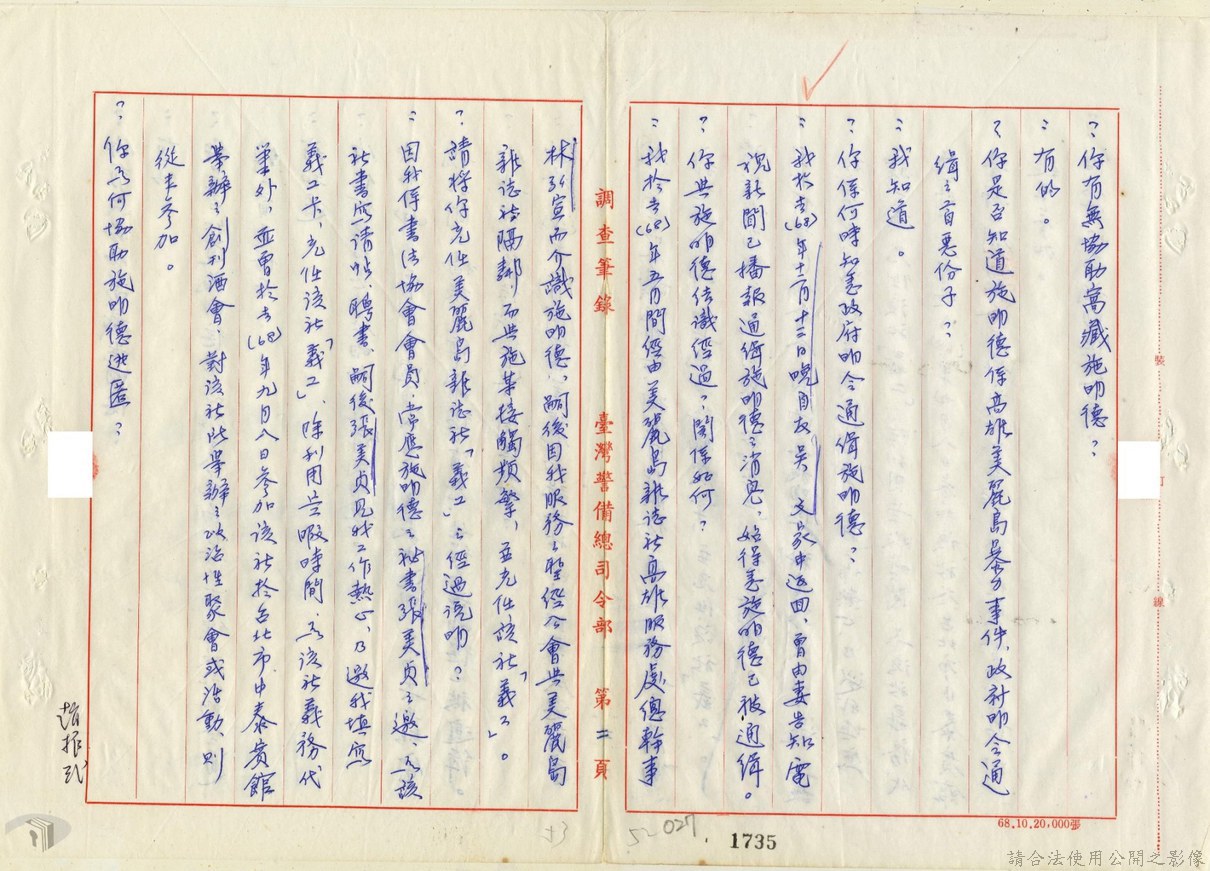 ？你有無協助窩藏施明德？
：有的。
？你是否知道施明德係高雄美麗島暴力事件，政府明令通
緝之首惡份子？
：我知道。
？你係何時知悉政府明令通緝施明德？
：我於去(68)年十二月十二日晚自友吳文家中返回，曾由妻告知電
視新聞已播報通緝施明德之消息，始得悉施明德已被通緝。
？你與施明德結識經過？關係如何？
：我於去(68)年五月間經由美麗島雜誌社高雄服務處總幹事
調查筆錄　臺灣警備總司令部　第二頁
林弘宣而介識施明德，嗣後因我服務之聖經公會與美麗島
雜誌社隔鄰，而與施某接觸頻繁，並充任該社「義工」。
？請將你充任美麗島雜誌社「義工」之經過說明？
：因我係書法協會會員，常應施明德之祕書張美貞之邀，為該
社書寫請帖、聘書，嗣後張美貞見我工作熱心，乃邀我填寫
義工卡，充任該社「義工」，除利用空暇時間，為該社義務代
筆外，並曾於去(68)年九月八日參加該社於台北市中泰賓館
舉辦之創刊酒會，對該社所舉辦之政治性聚會或活動，則
從未參加。
？你為何協助施明德逃匿？
趙振貳
裝
訂
線
68.10.20,000張
53
52
027
1735
請合法使用公開之影像